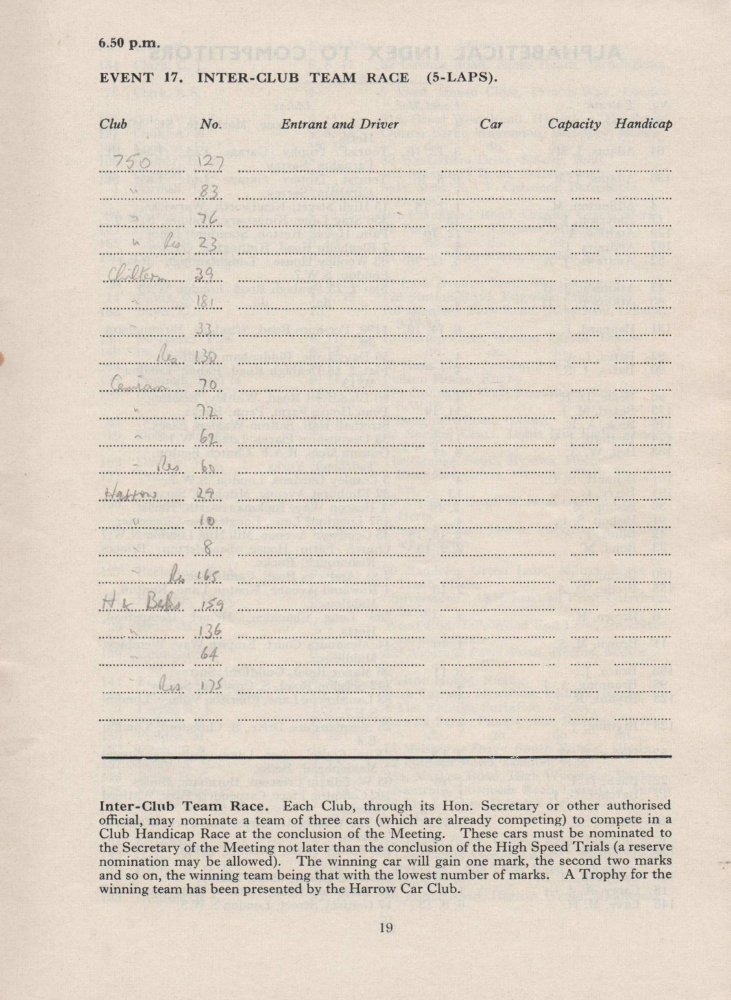 6.50 p.m.
EVENT 17. INTER-CLUB TEAM RACE (5-LAPS).
Club No. Entrant and Driver Car Capacity Handicap
750 127
" 83
" 76
" Res 23
Chiltern 39
" 181
33
Res 130
70
" 72
" 62
" Res. 60
Harrow 29
" 10
" 8
Res 165
H & Berks. 159
" 136
" 64
Res 175
Inter-Club Team Race. Each Club, through its Hon. Secretary or other authorised
official, may nominate a team of three cars (which are already competing) to compete in a
Club Handicap Race at the conclusion of the Meeting. These cars must be nominated to
the Secretary of the Meeting not later than the conclusion of the High Speed Trials (a reserve
nomination may be allowed). The winning car will gain one mark, the second two marks
and so on, the winning team being that with the lowest number of marks. A Trophy for the
winning team has been presented by the Harrow Car Club.
19